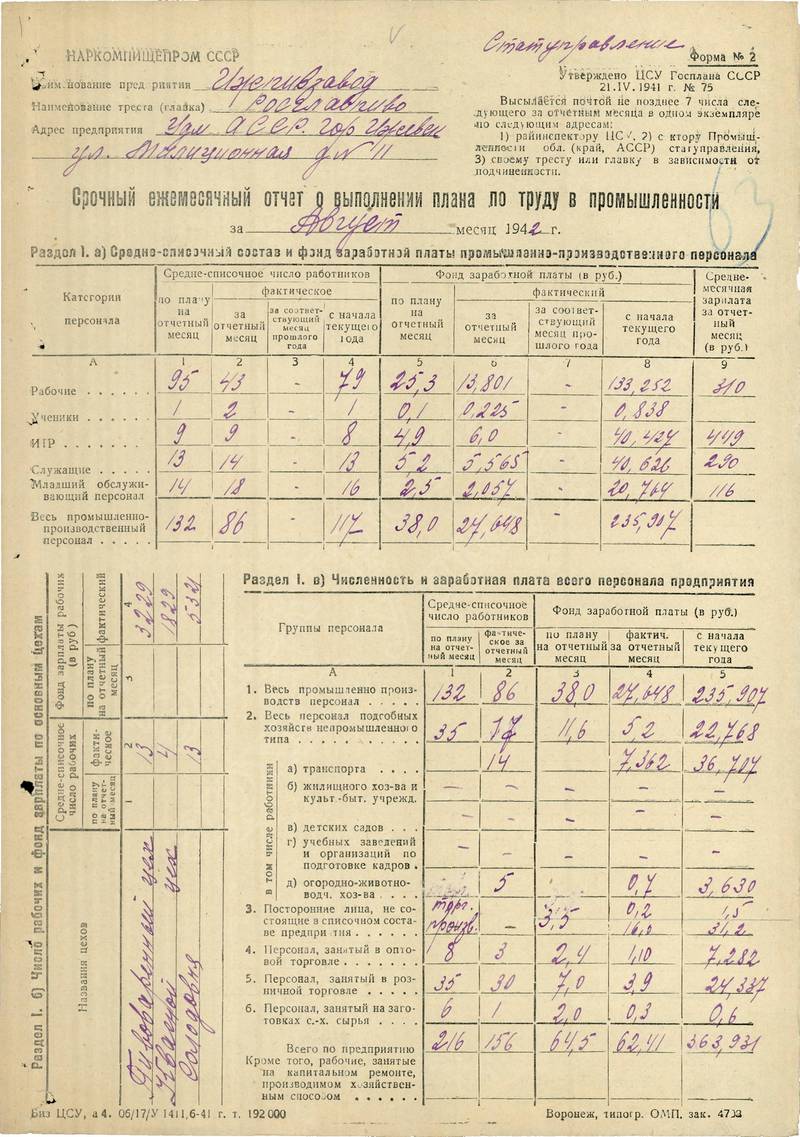 Статуправление
НАРКОМПИЩЕПРОМ СССР
Форма № 2
Наименование предприятия Ижпивзавод
Наименование треста (главка) Росглавпиво
Адрес предприятия Удм АССР. гор. Ижевск
ул. Милиционная д № 11
Утверждено ЦСУ Госплана СССР
21.IV. 1941 г. № 75
Высылается почтой не позднее 7 числа сле-
дующего за отчетным месяца в одном экземпляре
по следующим адресам:
1) райинспектору ЦСУ, 2) сектору Промыш-
ленности обл. (край, АССР) статуправления,
3) своему тресту или главку в зависимости от
подчиненности.
63
Срочный ежемесячный отчет о выполнении плана по труду в промышленности
за Август месяц 1942 г.
Раздел I. а) Средне-списочный состав и фонд заработной платы промышленно-производственного персонала
Категории персонала
Средне-списочное число работников
по плану на отчетный месяц
фактическое
за отчетный месяц
за соответ-ствующий месяц прошлого года
с начала текущего года
Фонд заработной платы (в руб.)
по плану на отчетный месяц
фактический
за отчетный месяц
за соответ-ствующий месяц про-шлого года
с начала текущего года
Средне-месячная зарплата за отчет-ный месяц (в руб.)
А 1 2 3 4 5 6 7 8 9
Рабочие 95 43 - 79 25,3 13,801 - 133,252 310
Ученики 1 2 - 1 0,1 0,225 - 0,838
ИТР 9 9 - 8 4,9 6,0 - 40,427 449
Служащие 13 14 - 13 5,2 5,565 - 40,626 290
Младший обслужи-
вающий персонал 14 18 - 16 2,5 2,057 - 20,764 116
Весь промышленно-
производственный
персонал 132 86 - 117 38,0 27,648 - 235,907
Раздел I. б) Число рабочих и фонд зарплаты по основным цехам
Названия цехов
Средне-списочное число рабочих
по плану на отчет-ный месяц
факти-ческое
Фонд зарплаты рабочих (в руб.)
по плану на отчетный месяц
фактический
1 2 3 4
Пивоваренный цех 13 3229
Квасной цех 4 1829
Солодовня 13 5321
Раздел I. в) Численность и заработная плата всего персонала предприятия
Группы персонала
Средне-списочное число работников
по плану на отчет-ный месяц
фактиче-ское за отчетный месяц
Фонд заработной платы (в руб.)
по плану на отчетный месяц
фактич. за отчетный месяц
с начала текущего года
А 1 2 3 4 5
1. Весь промышленно произ-
водств персонал 132 86 38,0 27,648 235,907
2. Весь персонал подсобных
хозяйств непромышленного
типа 35 17 11,6 5,2 22,768
в том числе работники
а) транспорта 14 7,362 36,707
б) жилищного хоз-ва и
культ.-быт. учрежд. — — — — —
в) детских садов — — — —
г) учебных заведений
и организаций по
подготовке кадров — — — —
д) огородно-животно-
водч. хоз-ва 5 0,7 3,630
3. Посторонние лица, не со-
стоящие в списочном соста-
ве предприятия торг. произв. — 3,5 0,2 16,0 1,5 31,2
4. Персонал, занятый в опто-
вой торговле 8 3 2,4 1,10 7,282
5. Персонал, занятый в роз-
ничной торговле 35 30 7,0 3,9 24,337
6. Персонал, занятый на заго-
товках с.-х. сырья 6 1 2,0 0,3 0,6
Всего по предприятию 216 156 64,5 62,41 363,931
Кроме того, рабочие, занятые
на капитальном ремонте,
производимом хозяйствен-
ным способом
Биз ЦСУ, а4. 06/17/У 1411,6-41 г. т. 192 000
Воронеж, типогр. ОМП. зак. 4733